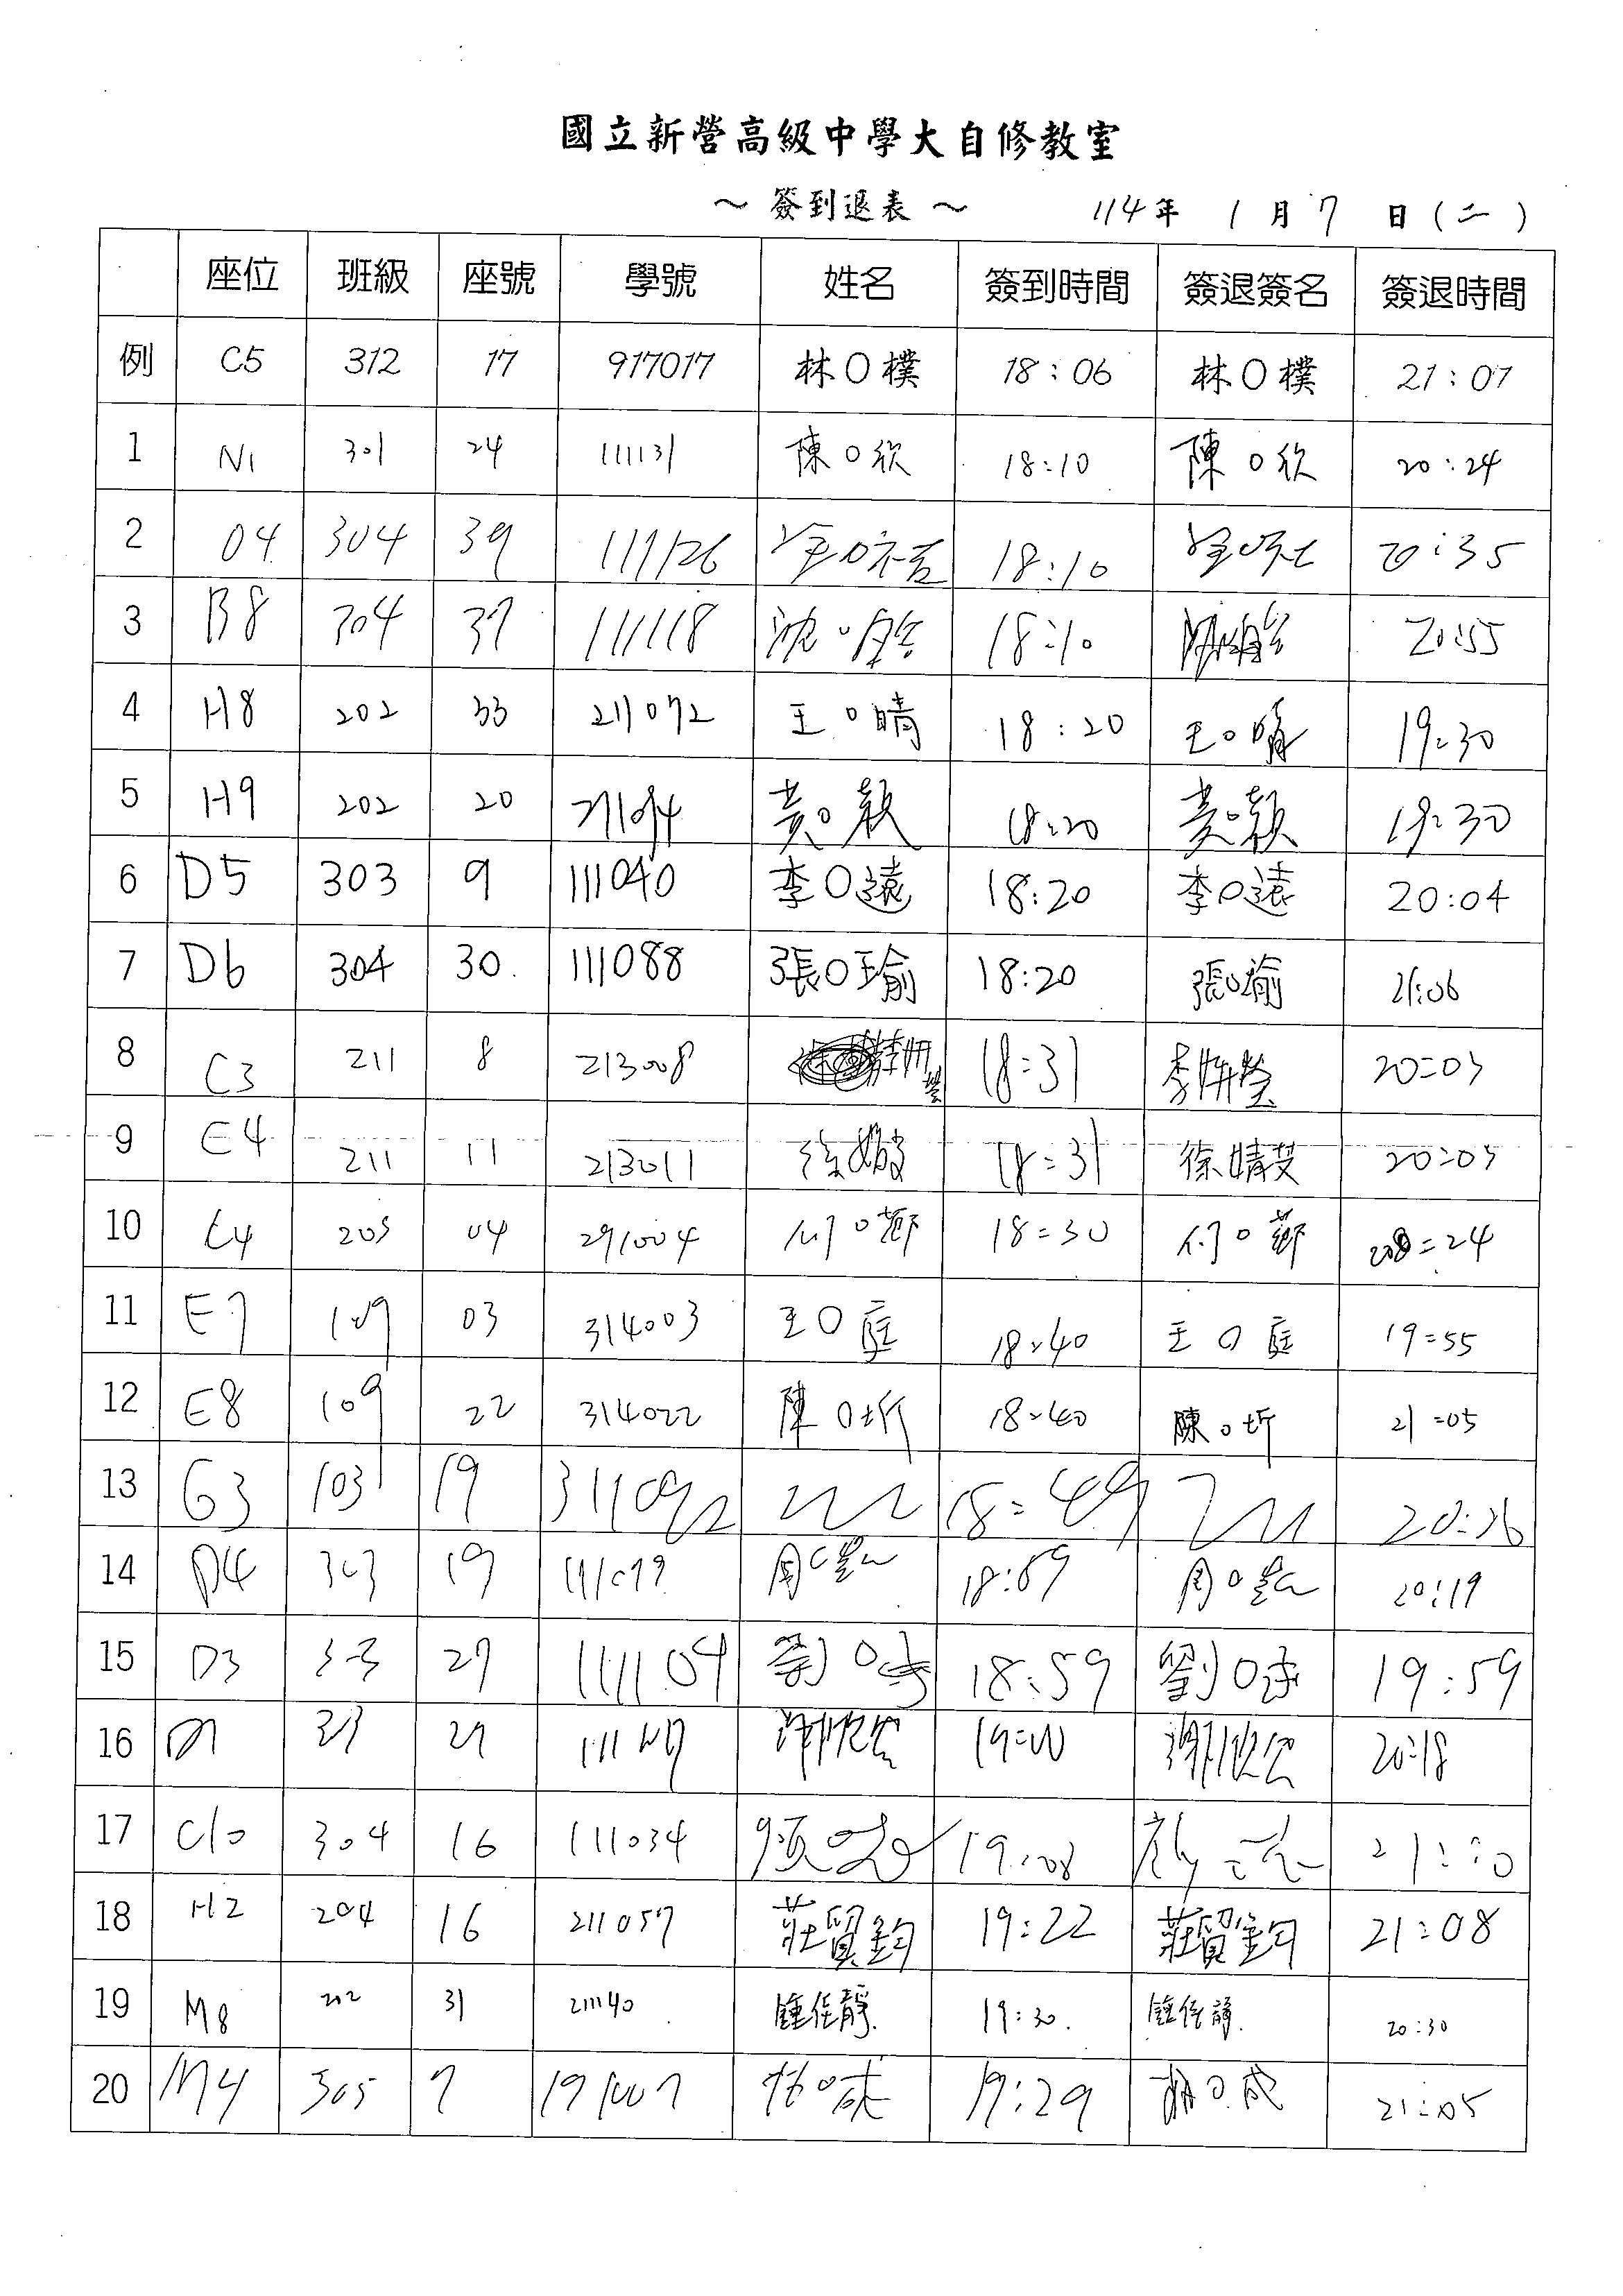 國立新營高級中學大自修教室
～ 簽到退表 ～ 114年 1 月 7 日 (二)
座位 班級 座號 學號 姓名 簽到時間 簽退簽名 簽退時間
例 C5 312 17 917017 林O樸 18:06 林O樸 21:07
1 N1 301 24 111131 陳O欣 18:10 陳O欣 20:24
2 O4 304 39 111126 18:10 20:35
3 B8 304 37 111118 沈O 18:10 20:55
4 H8 202 33 211072 王O晴 18:20 王O晴 19:30
5 H9 202 20 黃O穎 18:20 黃O穎 19:30
6 D5 303 9 111040 李O遠 18:20 李O遠 20:04
7 D6 304 30 111088 張O瑜 18:20 張O瑜 21:06
8 C3 211 8 213008 18:31 李妍瑩 20:05
9 E4 211 11 213011 18:31 徐婧芠 20:05
10 C4 205 04 291004 何O鄞 18:30 何O鄞 24
11 E7 109 03 314003 王O庭 18:40 王O庭 19:55
12 E8 109 22 314022 陳O圻 18:40 陳O圻 21:05
13 G3 103 19 311092 18:49 20:26
14 D4 303 19 周O 18:59 周O 20:19
15 D3 303 27 111104 劉O 18:59 劉O 19:59
16 19:00 20:18
17 C10 304 16 111034 19:08 21:10
18 H2 204 16 211057 莊貿鈞 19:22 莊貿鈞 21:08
19 M8 202 31 211140 鍾任靜 19:30 鍾任靜 20:30
20 M4 305 7 191007 19:29 胡O成 21:05